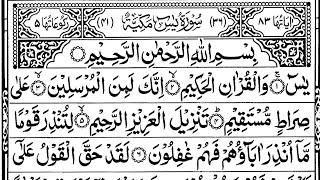 اٰیاتہا ۸۳ (۳۶) سُوْرَۃُ یٰسٓ مَکِّیَّۃٌ (۴۱) رکوعاتہا ۵
بِسْمِ اللّٰهِ الرَّحْمٰنِ الرَّحِیْمِ
یٰسٓ ۚ۝۱ وَالْقُرْاٰنِ الْحَكِیْمِ ۙ۝۲ اِنَّكَ لَمِنَ الْمُرْسَلِیْنَ ۙ۝۳ عَلٰی
صِرَاطٍ مُّسْتَقِیْمٍ ؕ۝۴ تَنْزِیْلَ الْعَزِیْزِ الرَّحِیْمِ ۙ۝۵ لِتُنْذِرَ قَوْمًا
مَّاۤ اُنْذِرَ اٰبَآؤُهُمْ فَهُمْ غٰفِلُوْنَ ۝۶ لَقَدْ حَقَّ الْقَوْلُ عَلٰۤی